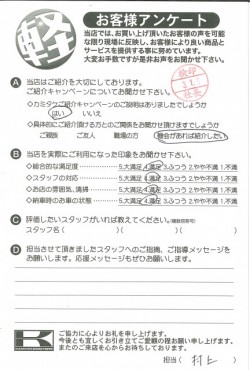 軽
お客様アンケート
当店では、お買い上げ頂いたお客様の声を可能
な限り現場に反映し、お客様により良い商品と
サービスを提供する事に努めています。
大変お手数ですが是非お声をお聞かせ下さい。
A 当店はご紹介を大切にしております。
ご紹介キャンペーンについてお聞かせ下さい。
◇カミタケご紹介キャンペーンのご説明はありましたでしょうか
はい いいえ
◇具体的にご紹介頂ける方とのご関係をお聞かせ頂けますでしょうか
ご親族 ご友人 職場の方 機会があれば紹介したい
B 当店を実際にご利用になった印象をお聞かせ下さい。
◇総合的な満足度 5.大満足 4.満足 3.ふつう 2.やや不満 1.不満
◇スタッフの対応 5.大満足 4.満足 3.ふつう 2.やや不満 1.不満
◇お店の雰囲気、清掃 5.大満足 4.満足 3.ふつう 2.やや不満 1.不満
◇納車時のお車の状態 5.大満足 4.満足 3.ふつう 2.やや不満 1.不満
C 評価したいスタッフがいれば教えてください。(複数回答可)
スタッフ名( )( )( )
D 担当させて頂きましたスタッフへのご指摘、ご指導メッセージを
お願いします。応援メッセージもぜひお願いします。
K
ご協力に心よりお礼を申し上げます。
今後とも宜しくお引き立てご愛顧の程お願い申し上げます。
またのご来店を心からお待ちしております。
担当( 村上 )